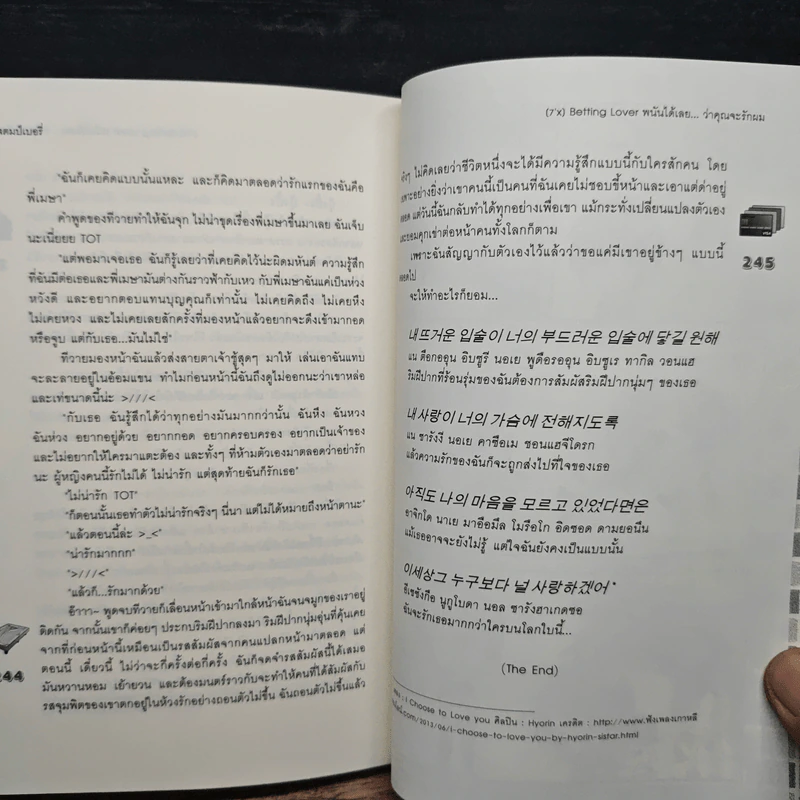 แตมป์เบอรี่
"ฉันก็เคยคิดแบบนั้นแหละ และก็คิดมาตลอดว่ารักแรกของฉันคือ
พี่เมษา"
คำพูดของทีวายทำให้ฉันจุก ไม่น่าขุดเรื่องพี่เมษาขึ้นมาเลย ฉันเจ็บ
นะเนี่ยยย TOT
"แต่พอมาเจอเธอ ฉันก็รู้เลยว่าที่เคยคิดไว้น่ะผิดมหันต์ ความรู้สึก
ที่ฉันมีต่อเธอและพี่เมษามันต่างกันราวฟ้ากับเหว กับพี่เมษาฉันแค่เป็นห่วง
หวังดี และอยากตอบแทนบุญคุณก็เท่านั้น ไม่เคยคิดถึง ไม่เคยหึง
ไม่เคยหวง และไม่เคยเลยสักครั้งที่มองหน้าแล้วอยากจะดึงเข้ามากอด
หรือจูบ แต่กับเธอ...มันไม่ใช่"
ทีวายมองหน้าฉันแล้วส่งสายตาเจ้าชู้สุดๆ มาให้ เล่นเอาฉันแทบ
จะละลายอยู่ในอ้อมแขน ทำไมก่อนหน้านี้ฉันถึงดูไม่ออกนะว่าเขาหล่อ
และเท่ขนาดนี้น่ะ >///<
"กับเธอ ฉันรู้สึกได้ว่าทุกอย่างมันมากกว่านั้น ฉันหึง ฉันหวง
ฉันห่วง อยากอยู่ด้วย อยากกอด อยากครอบครอง อยากเป็นเจ้าของ
และไม่อยากให้ใครมาแตะต้อง และทั้งๆ ที่ห้ามตัวเองมาตลอดว่าอย่ารัก
นะ ผู้หญิงคนนี้รักไม่ได้ ไม่น่ารัก แต่สุดท้ายฉันก็รักเธอ"
"ไม่น่ารัก TOT"
"ก็ตอนนั้นเธอทำตัวไม่น่ารักจริงๆ นี่นา แต่ไม่ได้หมายถึงหน้าตานะ"
"แล้วตอนนี้ล่ะ >_<"
"น่ารักมากกก"
">///<"
"แล้วก็...รักมากด้วย"
อ๊าาา~ พูดจบทีวายก็เลื่อนหน้าเข้ามาใกล้หน้าฉันจนจมูกของเราอยู่
ติดกัน จากนั้นเขาก็ค่อยๆ ประกบริมฝีปากลงมา ริมฝีปากนุ่มอุ่นที่คุ้นเคย
จากที่ก่อนหน้านี้เหมือนเป็นรสสัมผัสจากคนแปลกหน้ามาตลอด แต่
ตอนนี้ เดี๋ยวนี้ ไม่ว่าจะกี่ครั้งต่อกี่ครั้ง ฉันก็จดจำรสสัมผัสนี้ได้เสมอ
มันหวานหอม เย้ายวน และต้องมนตร์ราวกับจะทำให้คนที่ได้สัมผัสกับ
รสจุมพิตของเขาตกอยู่ในห้วงรักอย่างถอนตัวไม่ขึ้น ฉันถอนตัวไม่ขึ้นแล้ว
244
(7'x) Betting Lover พนันได้เลย... ว่าคุณจะรักผม
จริงๆ ไม่คิดเลยว่าชีวิตหนึ่งจะได้มีความรู้สึกแบบนี้กับใครสักคน โดย
เฉพาะอย่างยิ่งว่าเขาคนนี้เป็นคนที่ฉันเคยไม่ชอบขี้หน้าและเอาแต่ด่าอยู่
ตลอด แต่วันนี้ฉันกลับทำได้ทุกอย่างเพื่อเขา แม้กระทั่งเปลี่ยนแปลงตัวเอง
และยอมคุกเข่าต่อหน้าคนทั้งโลกก็ตาม
เพราะฉันสัญญากับตัวเองไว้แล้วว่าขอแค่มีเขาอยู่ข้างๆ แบบนี้
ตลอดไป
จะให้ทำอะไรก็ยอม...
245
VISA
내 뜨거운 입술이 너의 부드러운 입술에 닿길 원해
แน ตือกออุน อิบซูรี นอเย พูดือรออุน อิบซูเร ทากิล วอนแฮ
ริมฝีปากที่ร้อนรุ่มของฉันต้องการสัมผัสริมฝีปากนุ่มๆ ของเธอ
내 사랑이 너의 가슴에 전해지도록
แน ซารังงี นอเย คาซือเม ซอนแฮจีโดรก
แล้วความรักของฉันก็จะถูกส่งไปที่ใจของเธอ
아직도 나의 마음을 모르고 있었다면은
อาจิกโด นาเย มาอือมึล โมรือโก อิดซอด ดามยอนึน
แม้เธออาจจะยังไม่รู้ แต่ใจฉันยังคงเป็นแบบนั้น
이세상그 누구보다 널 사랑하겠어 *
อีเซซังกือ นูกูโบดา นอล ซารังฮาเกดซอ
ฉันจะรักเธอมากกว่าใครบนโลกใบนี้...
(The End)
เพลง : I Choose to Love you ศิลปิน : Hyorin เครดิต : http://www.ฟังเพลงเกาหลี
/2013/06/i-choose-to-love-you-by-hyorin-sistar.html